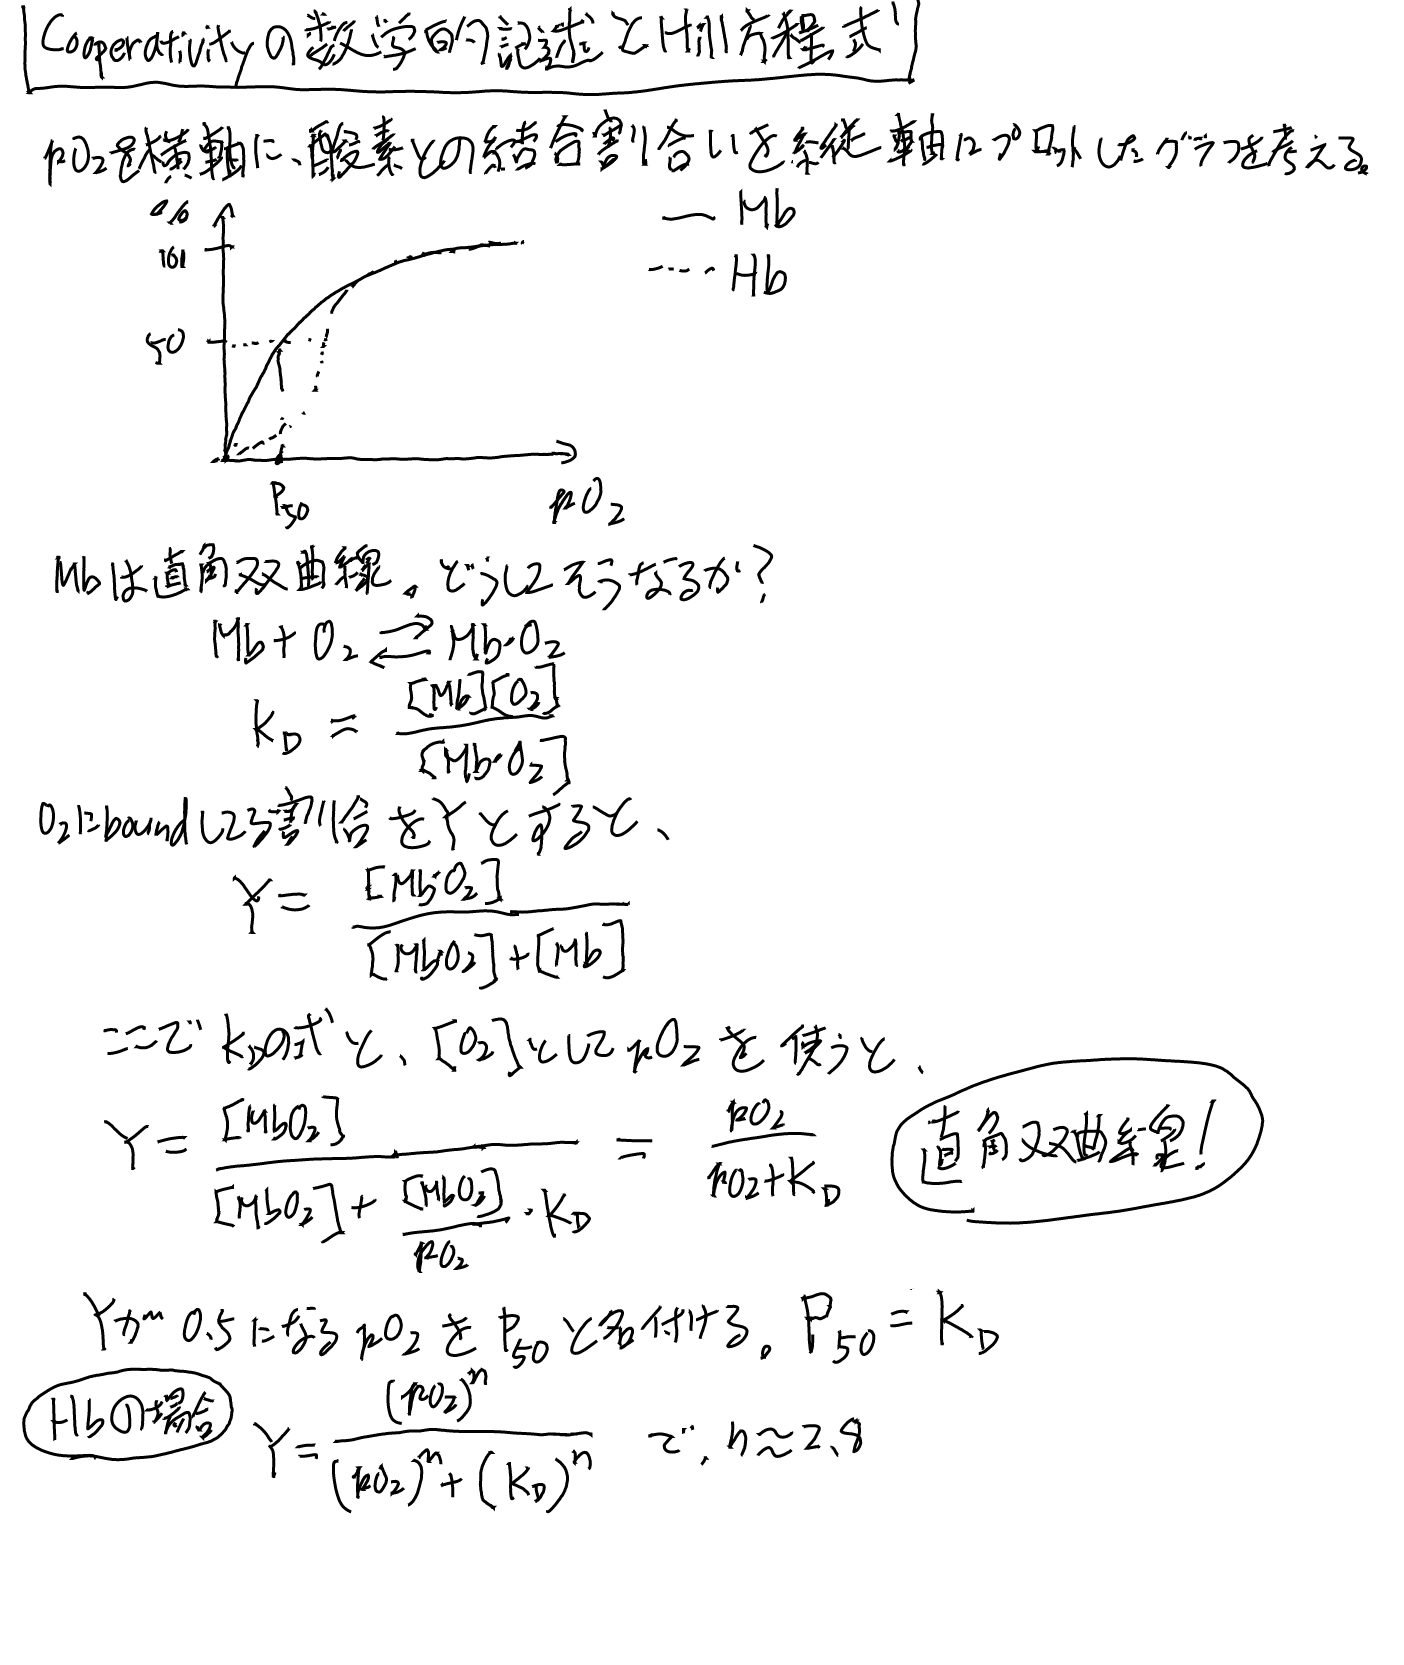 Cooperativityの数学的記述とHill方程式
pO₂を横軸に、酸素との結合割合いを縦軸にプロットしたグラフを考える。
%
100
50
P₅₀
pO₂
— Mb
---- Hb
Mbは直角双曲線。どうしてそうなるか?
Mb + O₂ ⇄ Mb·O₂
K_D = [Mb][O₂] / [Mb·O₂]
O₂にboundしてる割合をYとすると、
Y = [Mb·O₂] / ([Mb·O₂] + [Mb])
ここでK_Dの式と、[O₂]としてpO₂を使うと、
Y = [MbO₂] / ([MbO₂] + [MbO₂]/pO₂ · K_D) = pO₂ / (pO₂ + K_D) 直角双曲線!
Yが0.5になるpO₂をP₅₀と名付ける。P₅₀ = K_D
Hbの場合 Y = (pO₂)ⁿ / ((pO₂)ⁿ + (K_D)ⁿ) で、n≈2.8